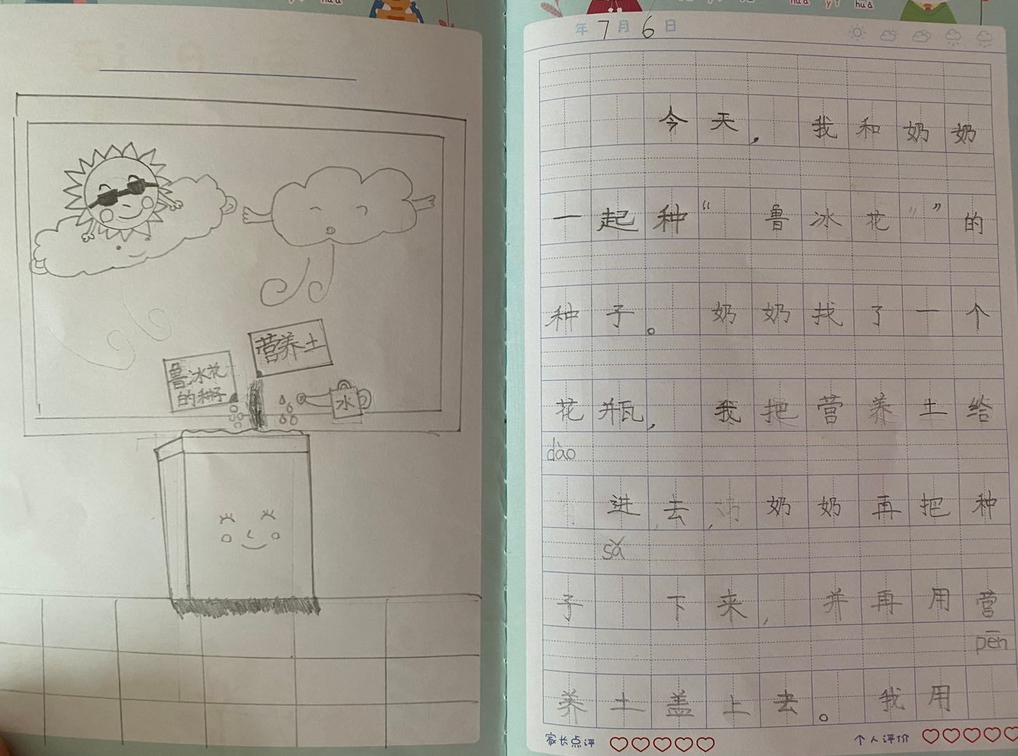 营养土
鲁冰花
的种子
水
年7月6日
今天，我和奶奶
一起种“鲁冰花”的
种子。奶奶找了一个
花瓶，我把营养土给
dào
进去，奶奶再把种
sǎ
子 下来，并再用营
pēn
养土盖上去。我用
家长点评
个人评价